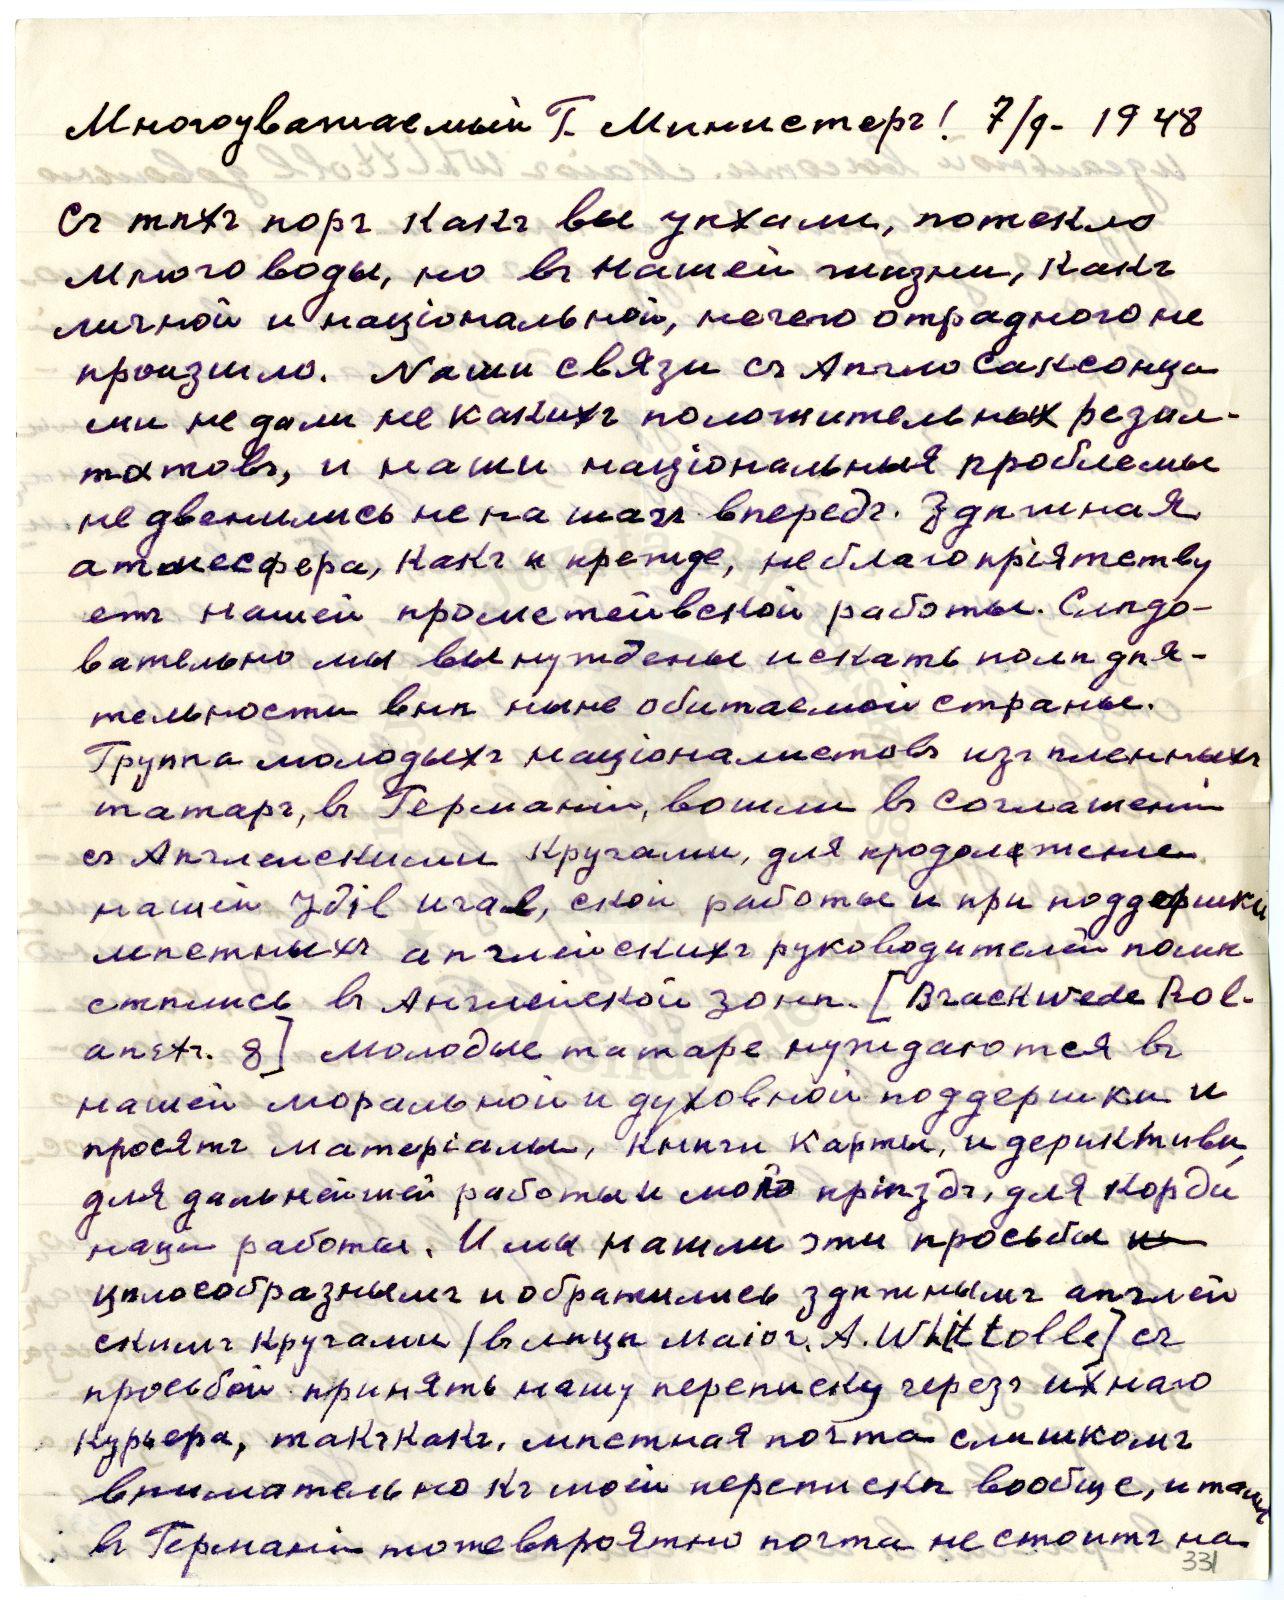 Многоуважаемый Г. Министеръ! 7/9- 1948
Съ тѣхъ поръ какъ вы уѣхали, потекло
много воды, но въ нашей жизни, какъ
личной и націоналъной, нечего отрадного не
произшло. Nаши связи съ Англо Саксонца
ми не дали не какихъ положительных резул-
татовъ, и наши національныя проблемы
не двенились не на шагъ впередъ. Здѣшная
атмесфера, какъ и прежде, не благопріятству
етъ нашей прометейвской работы. Слѣдо-
вательно мы вынуждены искать полѣ дѣя-
тельности внѣ ныне обитаемой страны.
Группа молодыхъ націоналистовъ изъ пленныхъ
татаръ, въ Германіи, вошли въ соглашеніи
съ Англеискими кругами, для продолжение
нашей скои работы и при поддершки
мѣстныхъ английскихъ руководителей помѣ
стились въ Англейской зонѣ. [Brackwede Rol-
anstr. 8] Молодые татаре нуждаются въ
нашей моральной и духовной поддершки и
просятъ матеріалы, книги карты, и дерективи,
для дальнейшей работы и мого пріѣздъ, для корди
наци работы. И мы нашли эти просьбы
цѣлосообразнымъ и обратились здѣшнымъ англей
скимъ кругами [въ лицѣ маіоръ. A. Whittolle] съ
просьбой принять нашу переписку черезъ ихнаго
курьера, такъ какъ. мѣстная почта слишкомъ
внимательно къ моей перепискѣ вообще, и тамъ
въ Германіи тоже вѣроятно почта не стоитъ на
331